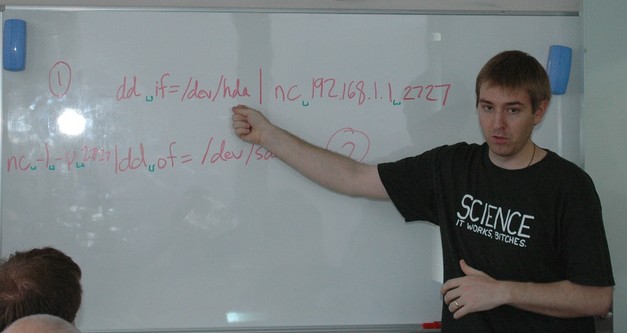 ① dd if=/dev/hda | nc 192.168.1.1 2727
nc -l - |dd of=/dev/ ②
SCIENCE
IT WORKS, BITCHES.